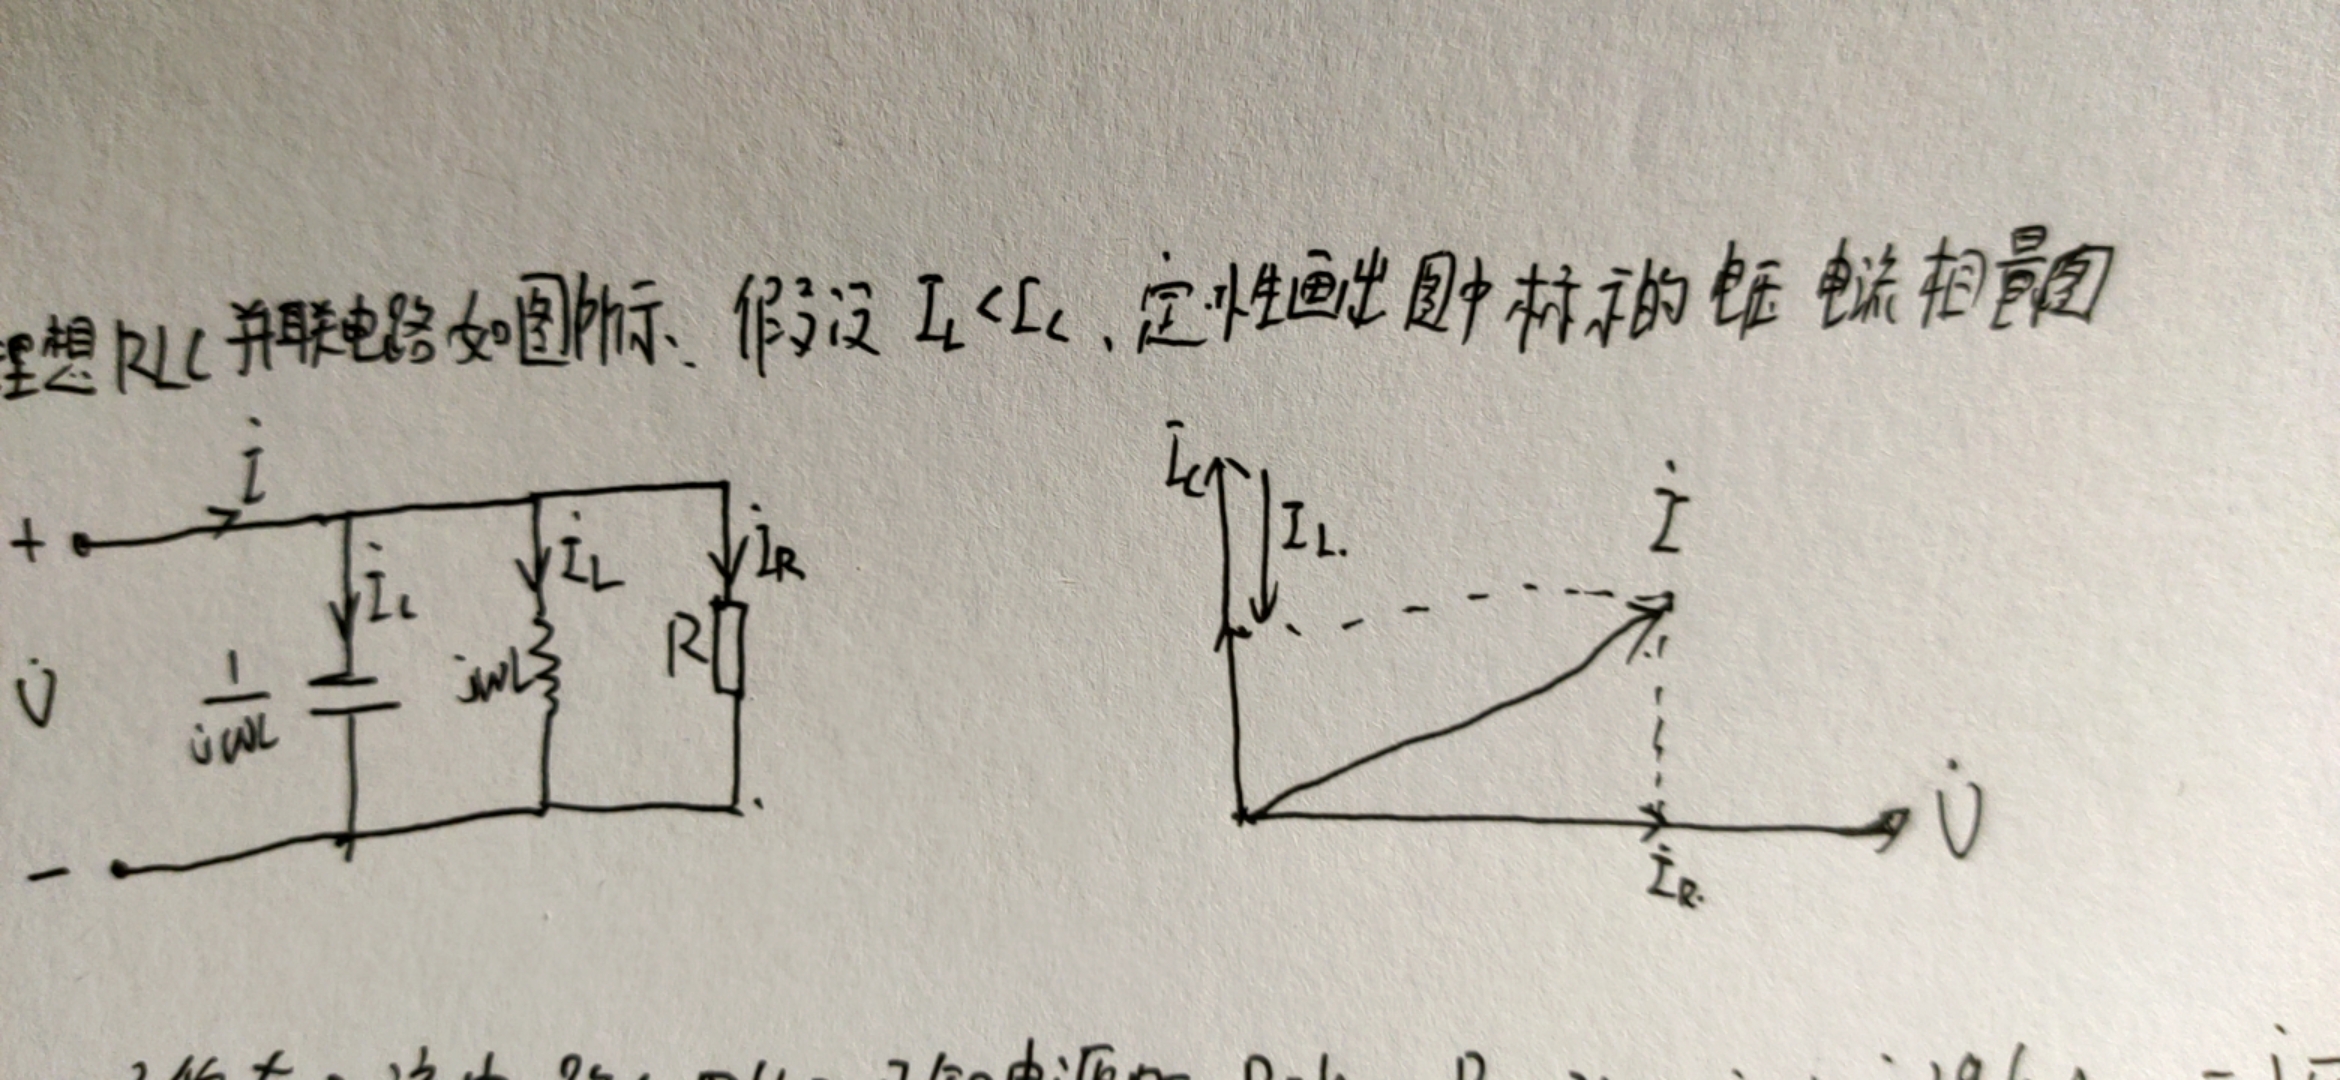 理想RLC并联电路如图所示、假设 I_L<I_C、定性画出图中标示的电压 电流相量图
İ
İ_C
+
İ_L
İ
İ_R
I_L.
İ_C
1
jωL
R
jωC
U̇
U̇
İ_R.
-